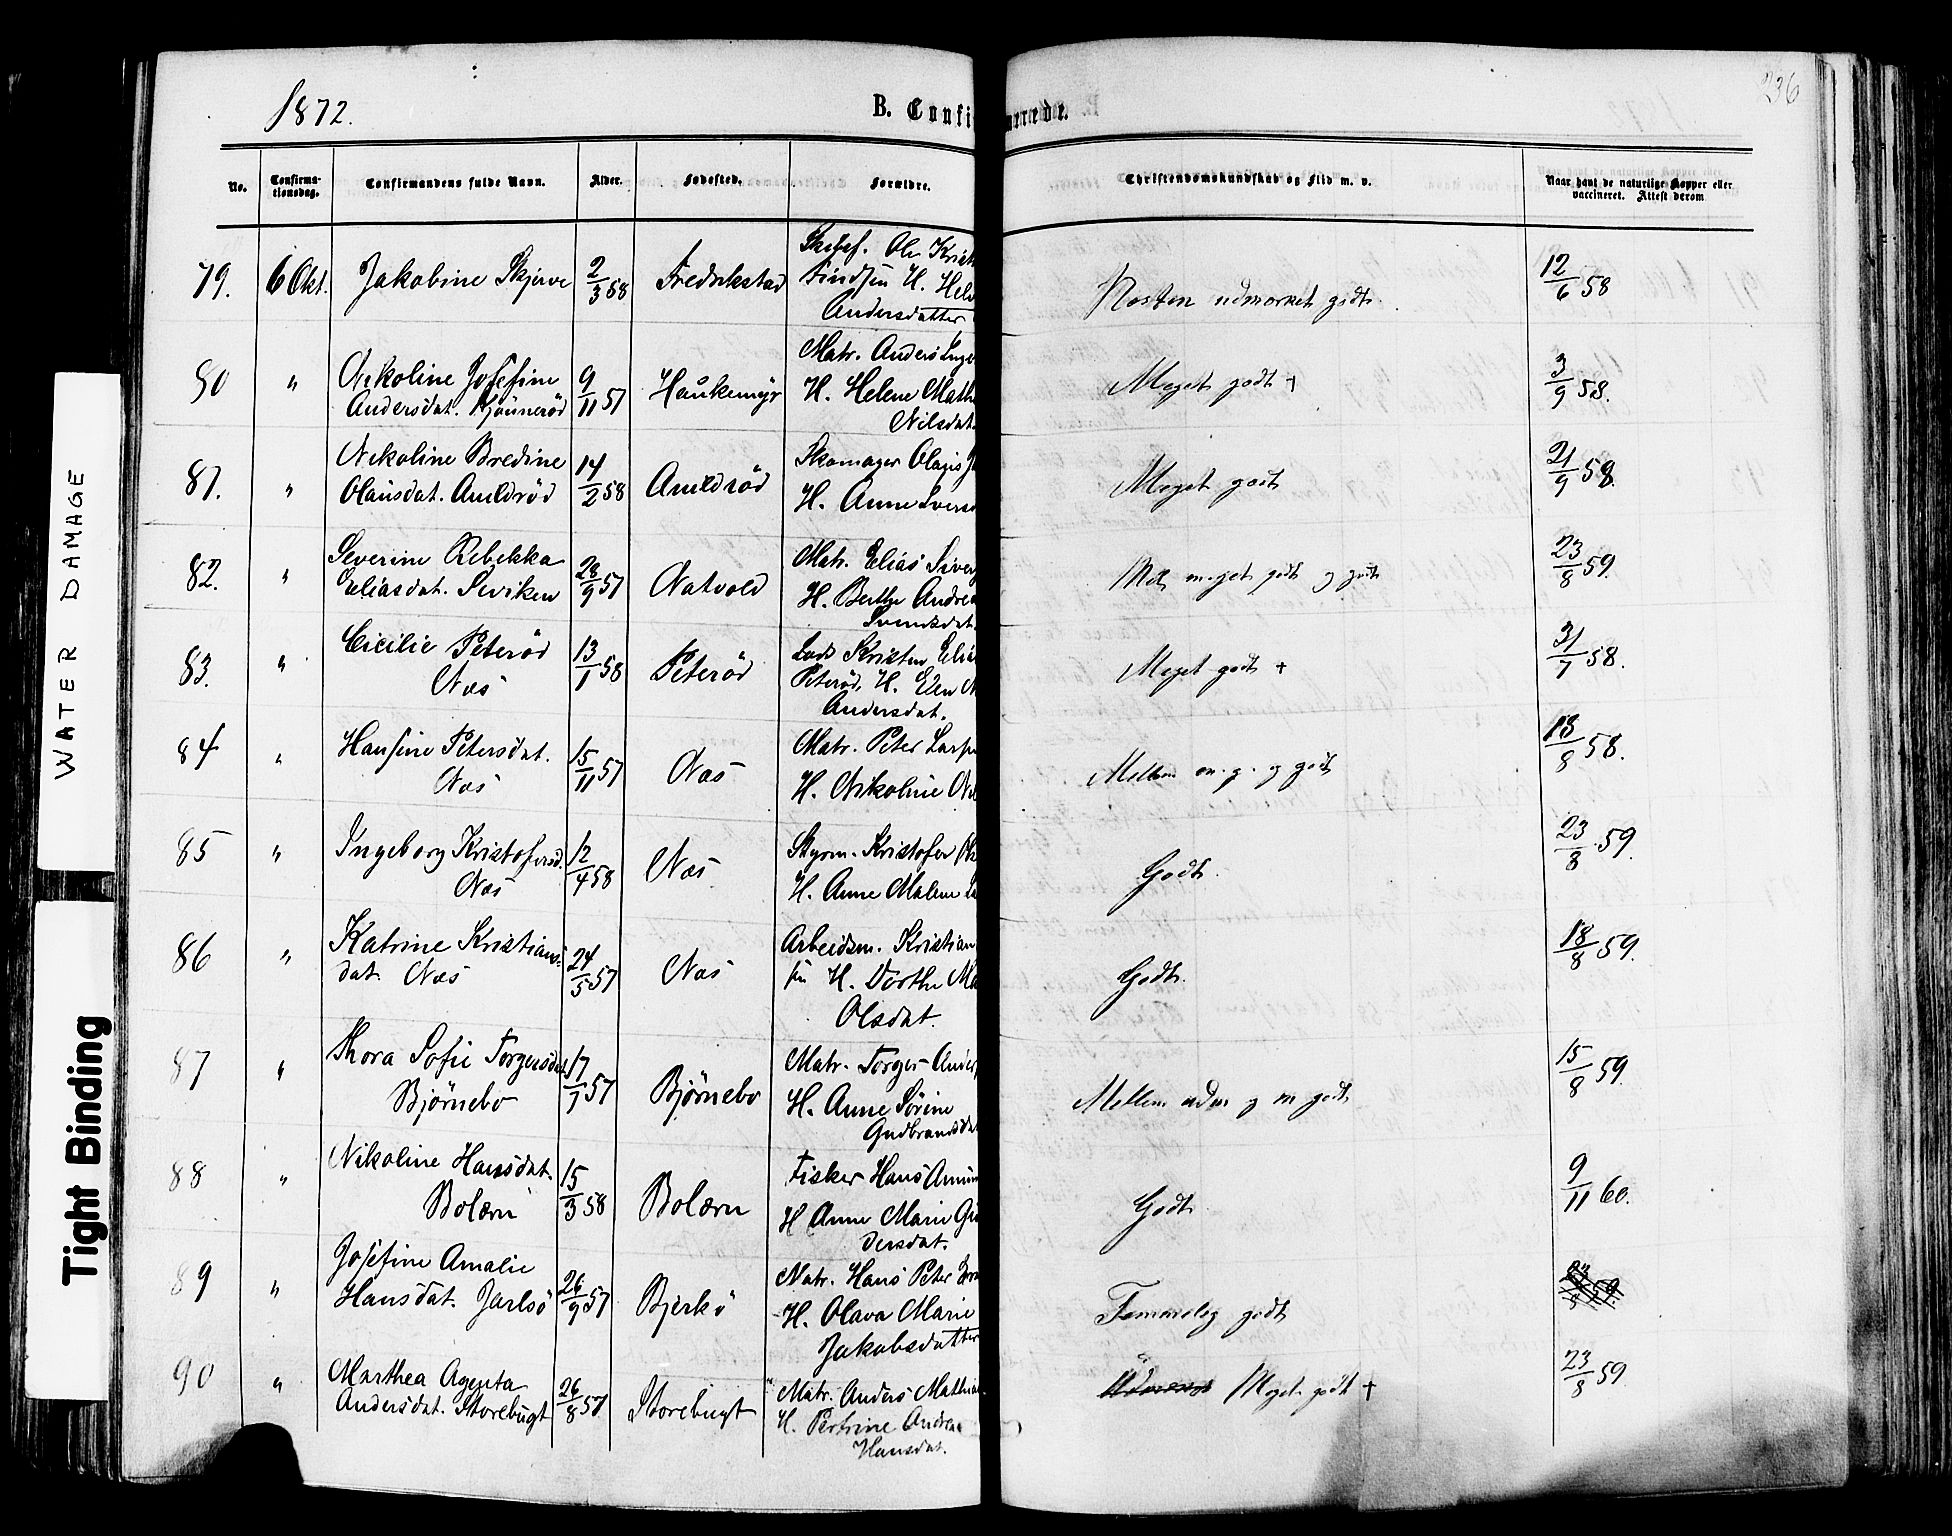 1872.
B. Confi
rmerede.
236
No.
Confirma-
tionsdag.
Confirmandens fulde Navn.
Alder.
Fødested.
Forældre.
Christendomskundskab og Flid m. v.
Naar havt de naturlige Kopper eller
vaccineret. Attest derom
79. 6 Okt. Jakobine Skjerve 2/3 58 Fredrikstad
Ole Krist
H. Hel
Andersdatter
Næsten udmærket godt.
12/6 58
80 " Nikoline Josefine
Andersdat. 9/11 57 Haukemyr
Matr. Anders Inge
H. Helene Math
Nilsdat.
Meget godt +
3/9 58.
81. " Nikoline Bredine
Olausdat. Amdrød 14/2 58 Amdrød
Skomager
H. Anne Ivers
Meget godt
21/9 58.
82. " Severine Rebekka
Eliasdat. Seviken 28/9 57 Natvold
Matr. Elias Siver
H. Berthe Andrea
Svendsdat.
meget godt og godt
23/8 59.
83. " Cicilie Peterød
Næs 13/1 58 Peterød
Lods Kristen Elia
Peterød, H. Elen
Andersdat.
Meget godt +
31/7 58.
84 " Hansine Petersdat.
Næs 15/11 57 Næs
Matr. Peter Lars
H. Nikoline Nil
Mellem m. g. og godt
18/8 58.
85 " Ingeborg Kristofersd.
Næs 12/4 58 Næs
Styrm. Kristofer
H. Anne Malene
Godt.
23/8 59.
86 " Katrine Kristians-
dat. Næs 24/5 57 Næs
Arbeidsm. Kristian
sen H. Dorthe Ma
Olsdat.
Godt.
18/8 59.
87 " Thora Sofie Torgersdat
Bjørnebo 17/7 57 Bjørnebo
Matr. Torger Anders
H. Anne Sørine
Gudbrandsdat
Mellem udm og m godt
15/8 59.
88 " Nikoline Hansdat.
Bolærn 15/3 58 Bolærn
Fisker Hans Amun
H Anne Marie
dersdat.
Godt.
9/11 60.
89 " Josefine Amalie
Hansdat. Jarlsø 26/9 57 Bjerkø
Matr. Hans Peter
H. Olava Marie
Jakobsdatter
Temmelig godt
90 " Marthea Agenta
Andersdat. Storebugt 26/8 57 Storebugt
Matr. Anders Mathia
H. Pertrine Andrea
Hansdat.
Meget godt +
23/8 59.
WATER DAMAGE
Tight Binding